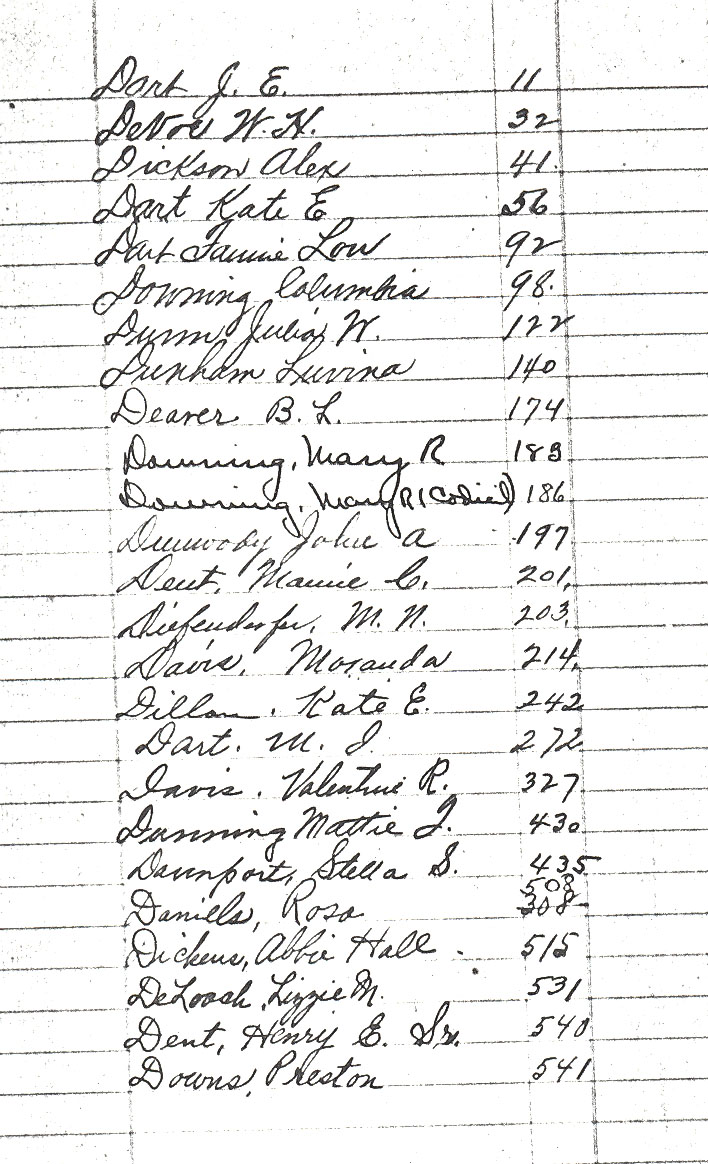 Dart J. E. 11
DeVoe W. H. 32
Dickson Alex 41.
Dart Kate E 56
Dart Fannie Lou 92
Downing Columbia 98.
Dunn Julia W. 122
Dunham Luvina 140
Deaver B. L. 174
Downing, Mary R 183
Downing, Mary R (Codicil) 186
Dunwody John A 197
Dent, Mamie C. 201.
Diefendorfer, M. N. 203.
Davis, Moranda 214.
Dillon. Kate E. 242
Dart. M. J. 272
Davis. Valentine R. 327
Dunning Mattie J. 430
Davnport, Stella S. 435
508
Daniels, Rosa 308
Dickens, Abbie Hall 515
DeLoach, Lizzie M. 531
Dent, Henry E. Sr. 540
Downs, Preston 541